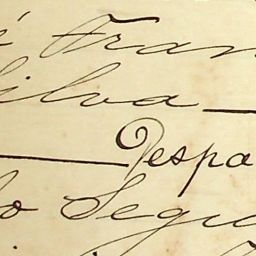 é Fran
Silva —
— Despa
do Segu